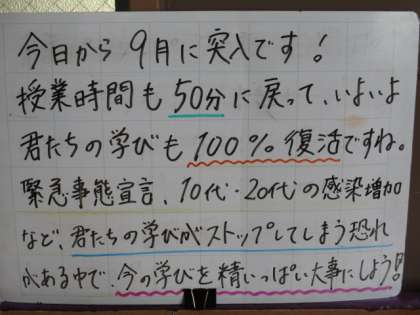 今日から9月に突入です！
授業時間も50分に戻って、いよいよ
君たちの学びも100%復活ですね。
緊急事態宣言、10代・20代の感染増加
など、君たちの学びがストップしてしまう恐れ
がある中で、今の学びを精いっぱい大事にしよう！